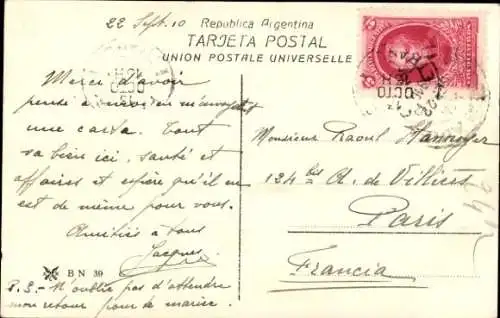 22 Sept. 10
Republica Argentina
TARJETA POSTAL
UNION POSTALE UNIVERSELLE
Merci d'avoir
pensé à moi en m'envoyant
une carte. Tout
va bien ici, santé et
affaires et espère qu'il en
est de même pour vous.
Amitiés à tous
Jacques
BN 39
P.S.- N'oublie pas d'attendre
mon retour pour te marier.
Monsieur Raoul
124 bis A. de Villiers
Paris
Francia
13
OCTO